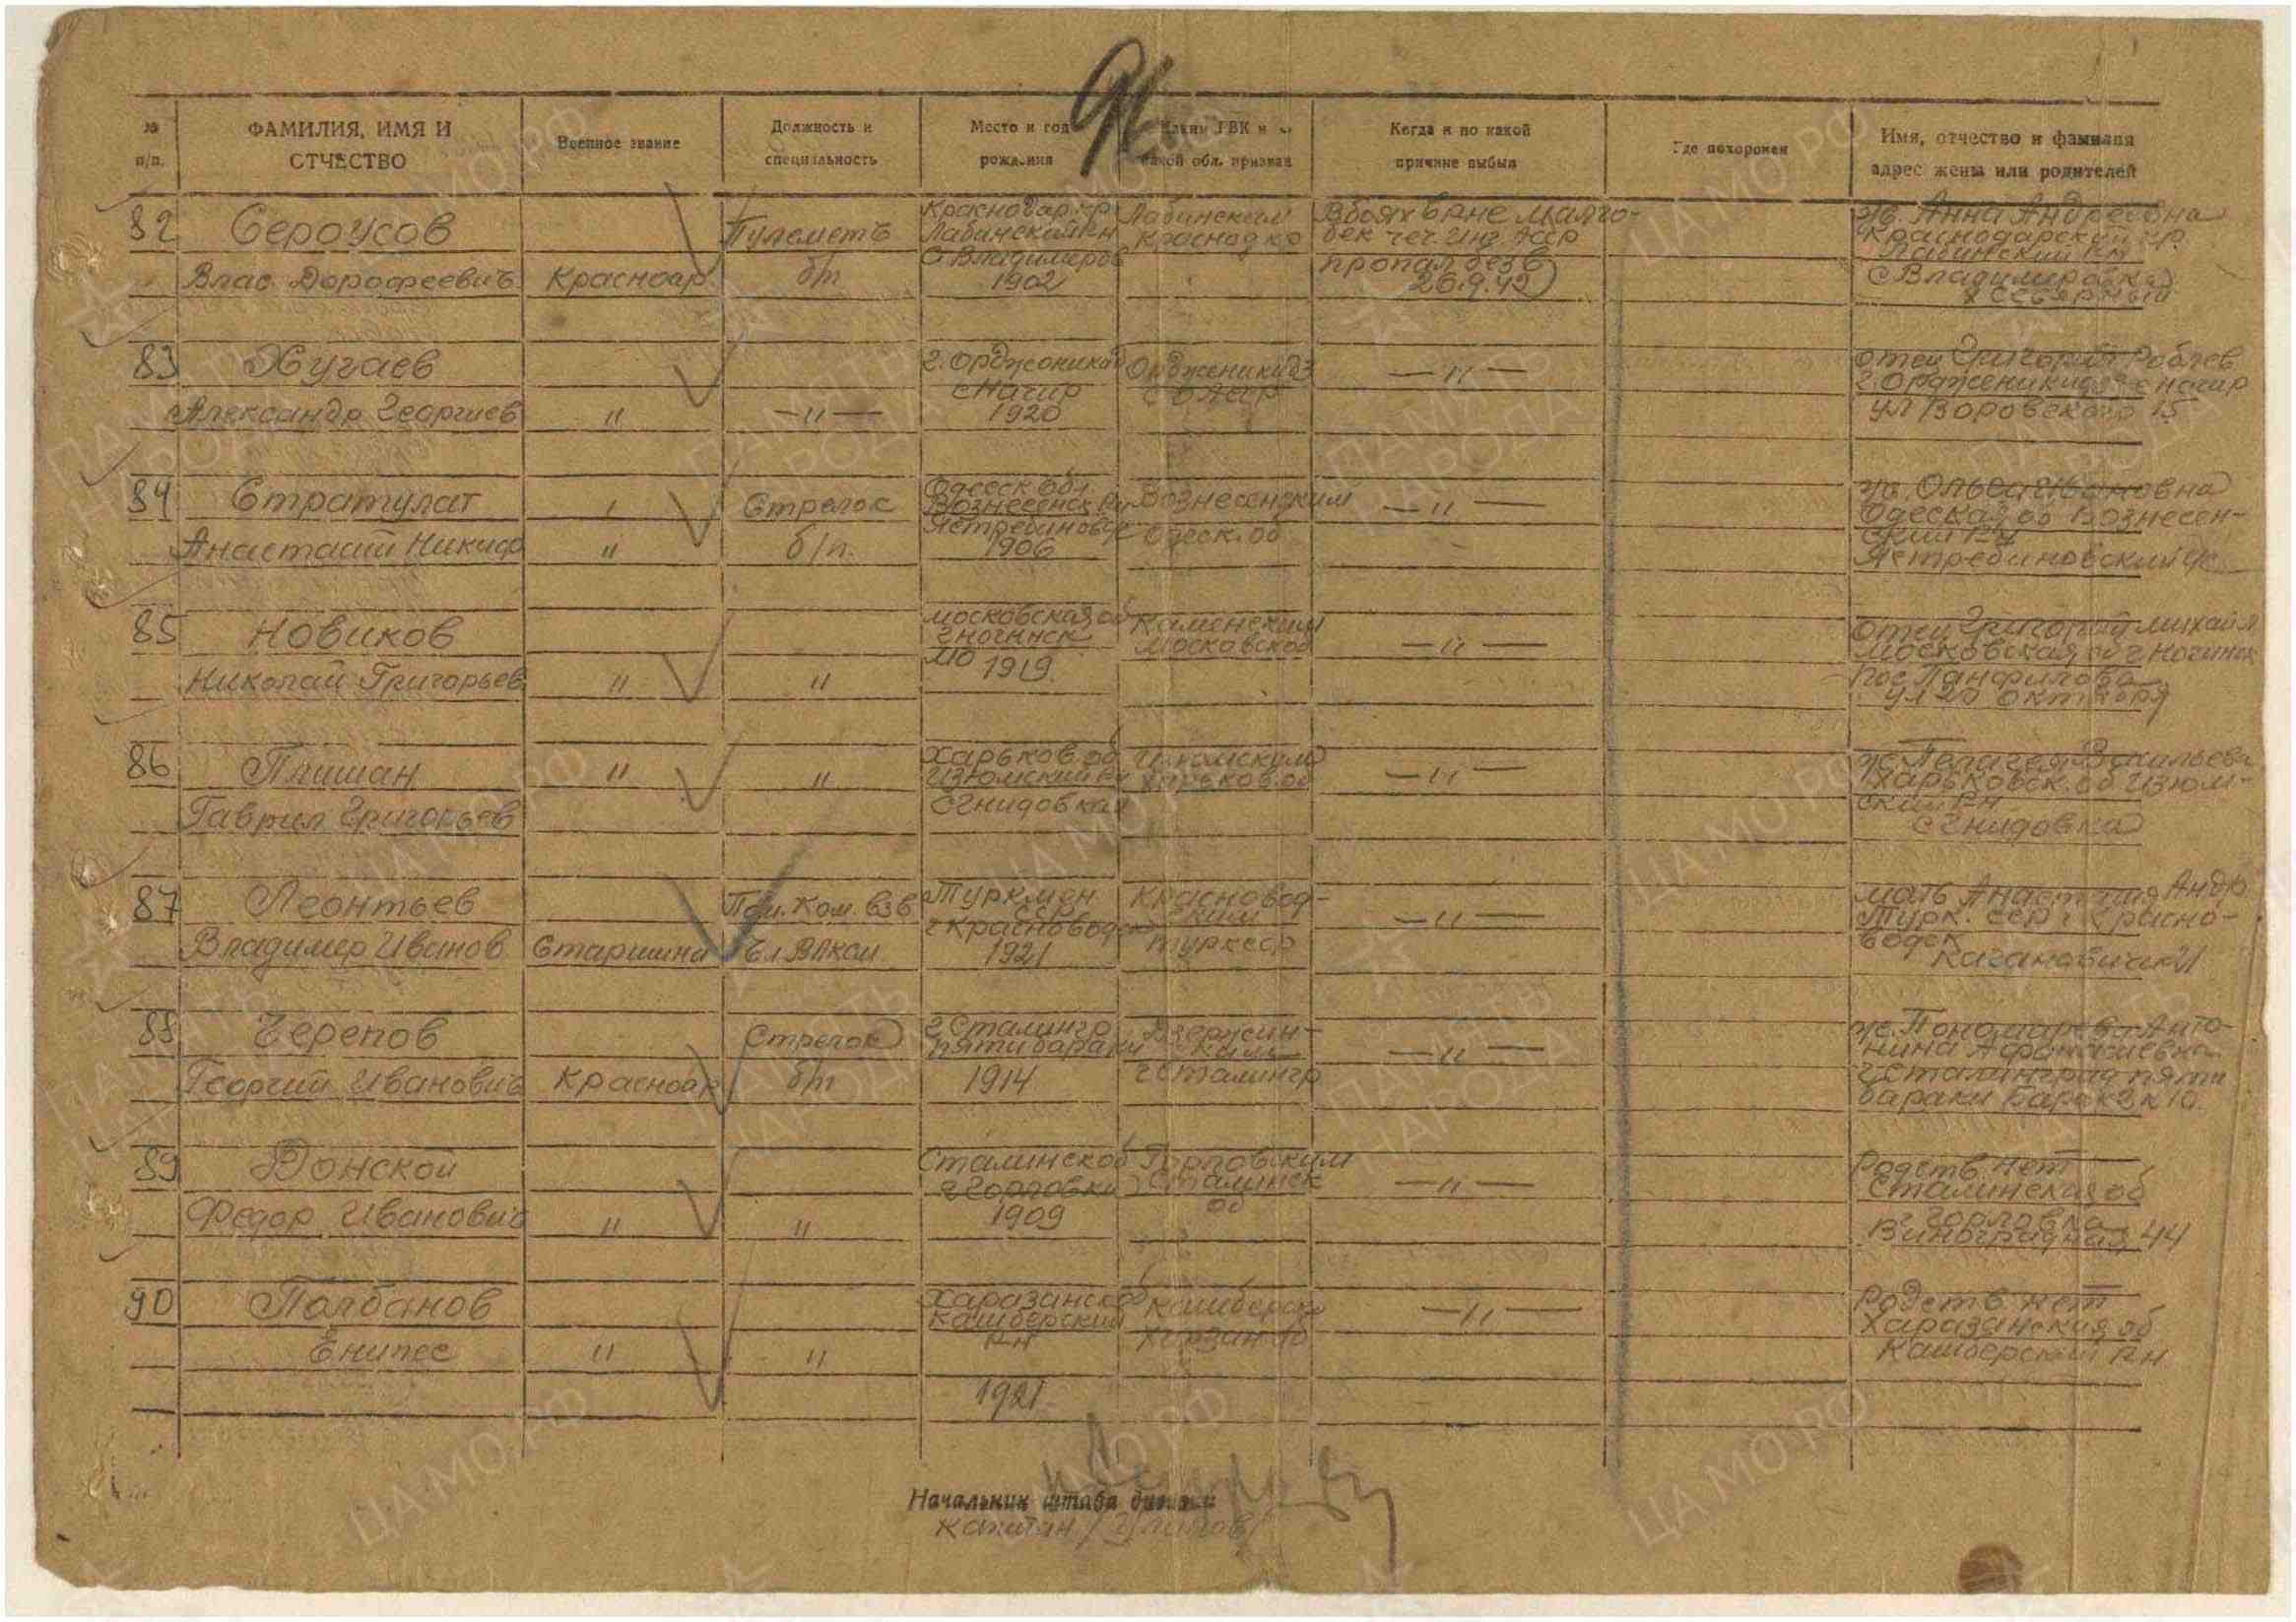 96
№ п/п.
ФАМИЛИЯ, ИМЯ И ОТЧЕСТВО
Военное звание
Должность и специальность
Место и год рождения
Каким ГВК и какой обл. призван
Когда и по какой причине выбыл
Где похоронен
Имя, отчество и фамилия адрес жены или родителей
82
Сероусов
Влас Дорофеевич
Красноар.
Пулеметч
б/п
Краснодар. кр
Лабинский рн
С. Владимиров
1902
Лабинским
Краснод кр
В боях в рне Малго-
бек чеч. Инг. Асср
пропал без в
26.9.42
ж. Анна Андреевна
Краснодарский кр.
Лабинский рн
с Владимировка
83
Хугаев
Александр Георгиев
"
— " —
г. Орджоникид
1920
Орджоникидз
— " —
отец Григорий
ул Воровского 15
84
Стратулат
Анастасий Никиф
"
Стрелок
б/п.
Одесск обл.
Вознесенск рн
Ястребиновск
1906
Вознесенским
Одеск. об
— " —
ж. Ольга Ивановна
Одеская об Вознесен-
ский рн
Ястребиновский
85
Новиков
Николай Григорьев
"
"
московская об
г ногинск
МО 1919.
Каменским
московской
— " —
отец Григорий михайл
московская об г. Ногинск
пос Панфилова
ул 20 октября
86
Плишан
Гаврил Григорьев
"
"
Харьков. об
Изюмский рн
с Гнидовкая
Изюмским
Харьков. об
— " —
ж. Пелагея Васильев
Харьковск. об Изюм-
ский рн
с Гнидовка
87
Леонтьев
Владимир Иванов
Старшина
Пом. Ком. взв
чл ВЛКСМ
Туркмен
ССР
г Красноводск
1921
Красновод-
ким
Турксср
— " —
мать Анастасия Андр
Турк. сср г Красно-
водск
Кагановича 21
88
Черепов
Георгий Иванович
Красноар
Стрелок
б/п
г. Сталингр
пяти бараки
1914
Дзержин-
ким
г Сталингр
— " —
ж. Пономарева Анто-
нина Афанасиевна
г Сталинград пяти
бараки барак 3 к 10.
89
Донской
Федор Иванович
"
"
Сталинской
г Горловки
1909
Горловским
Сталинск
об
— " —
Родств. нет
Сталинская об
г Горловка
Виноградная 44
90
Палбанов
Енипес
"
"
Харазанской
Кашберский
рн
1921
Кашберско
— " —
Родств. нет
Харазанская об
Кашберский рн
Начальник штаба
капитан